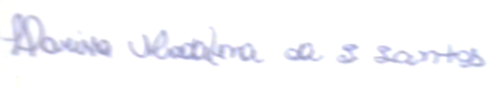 Marina Madalena da S Santos